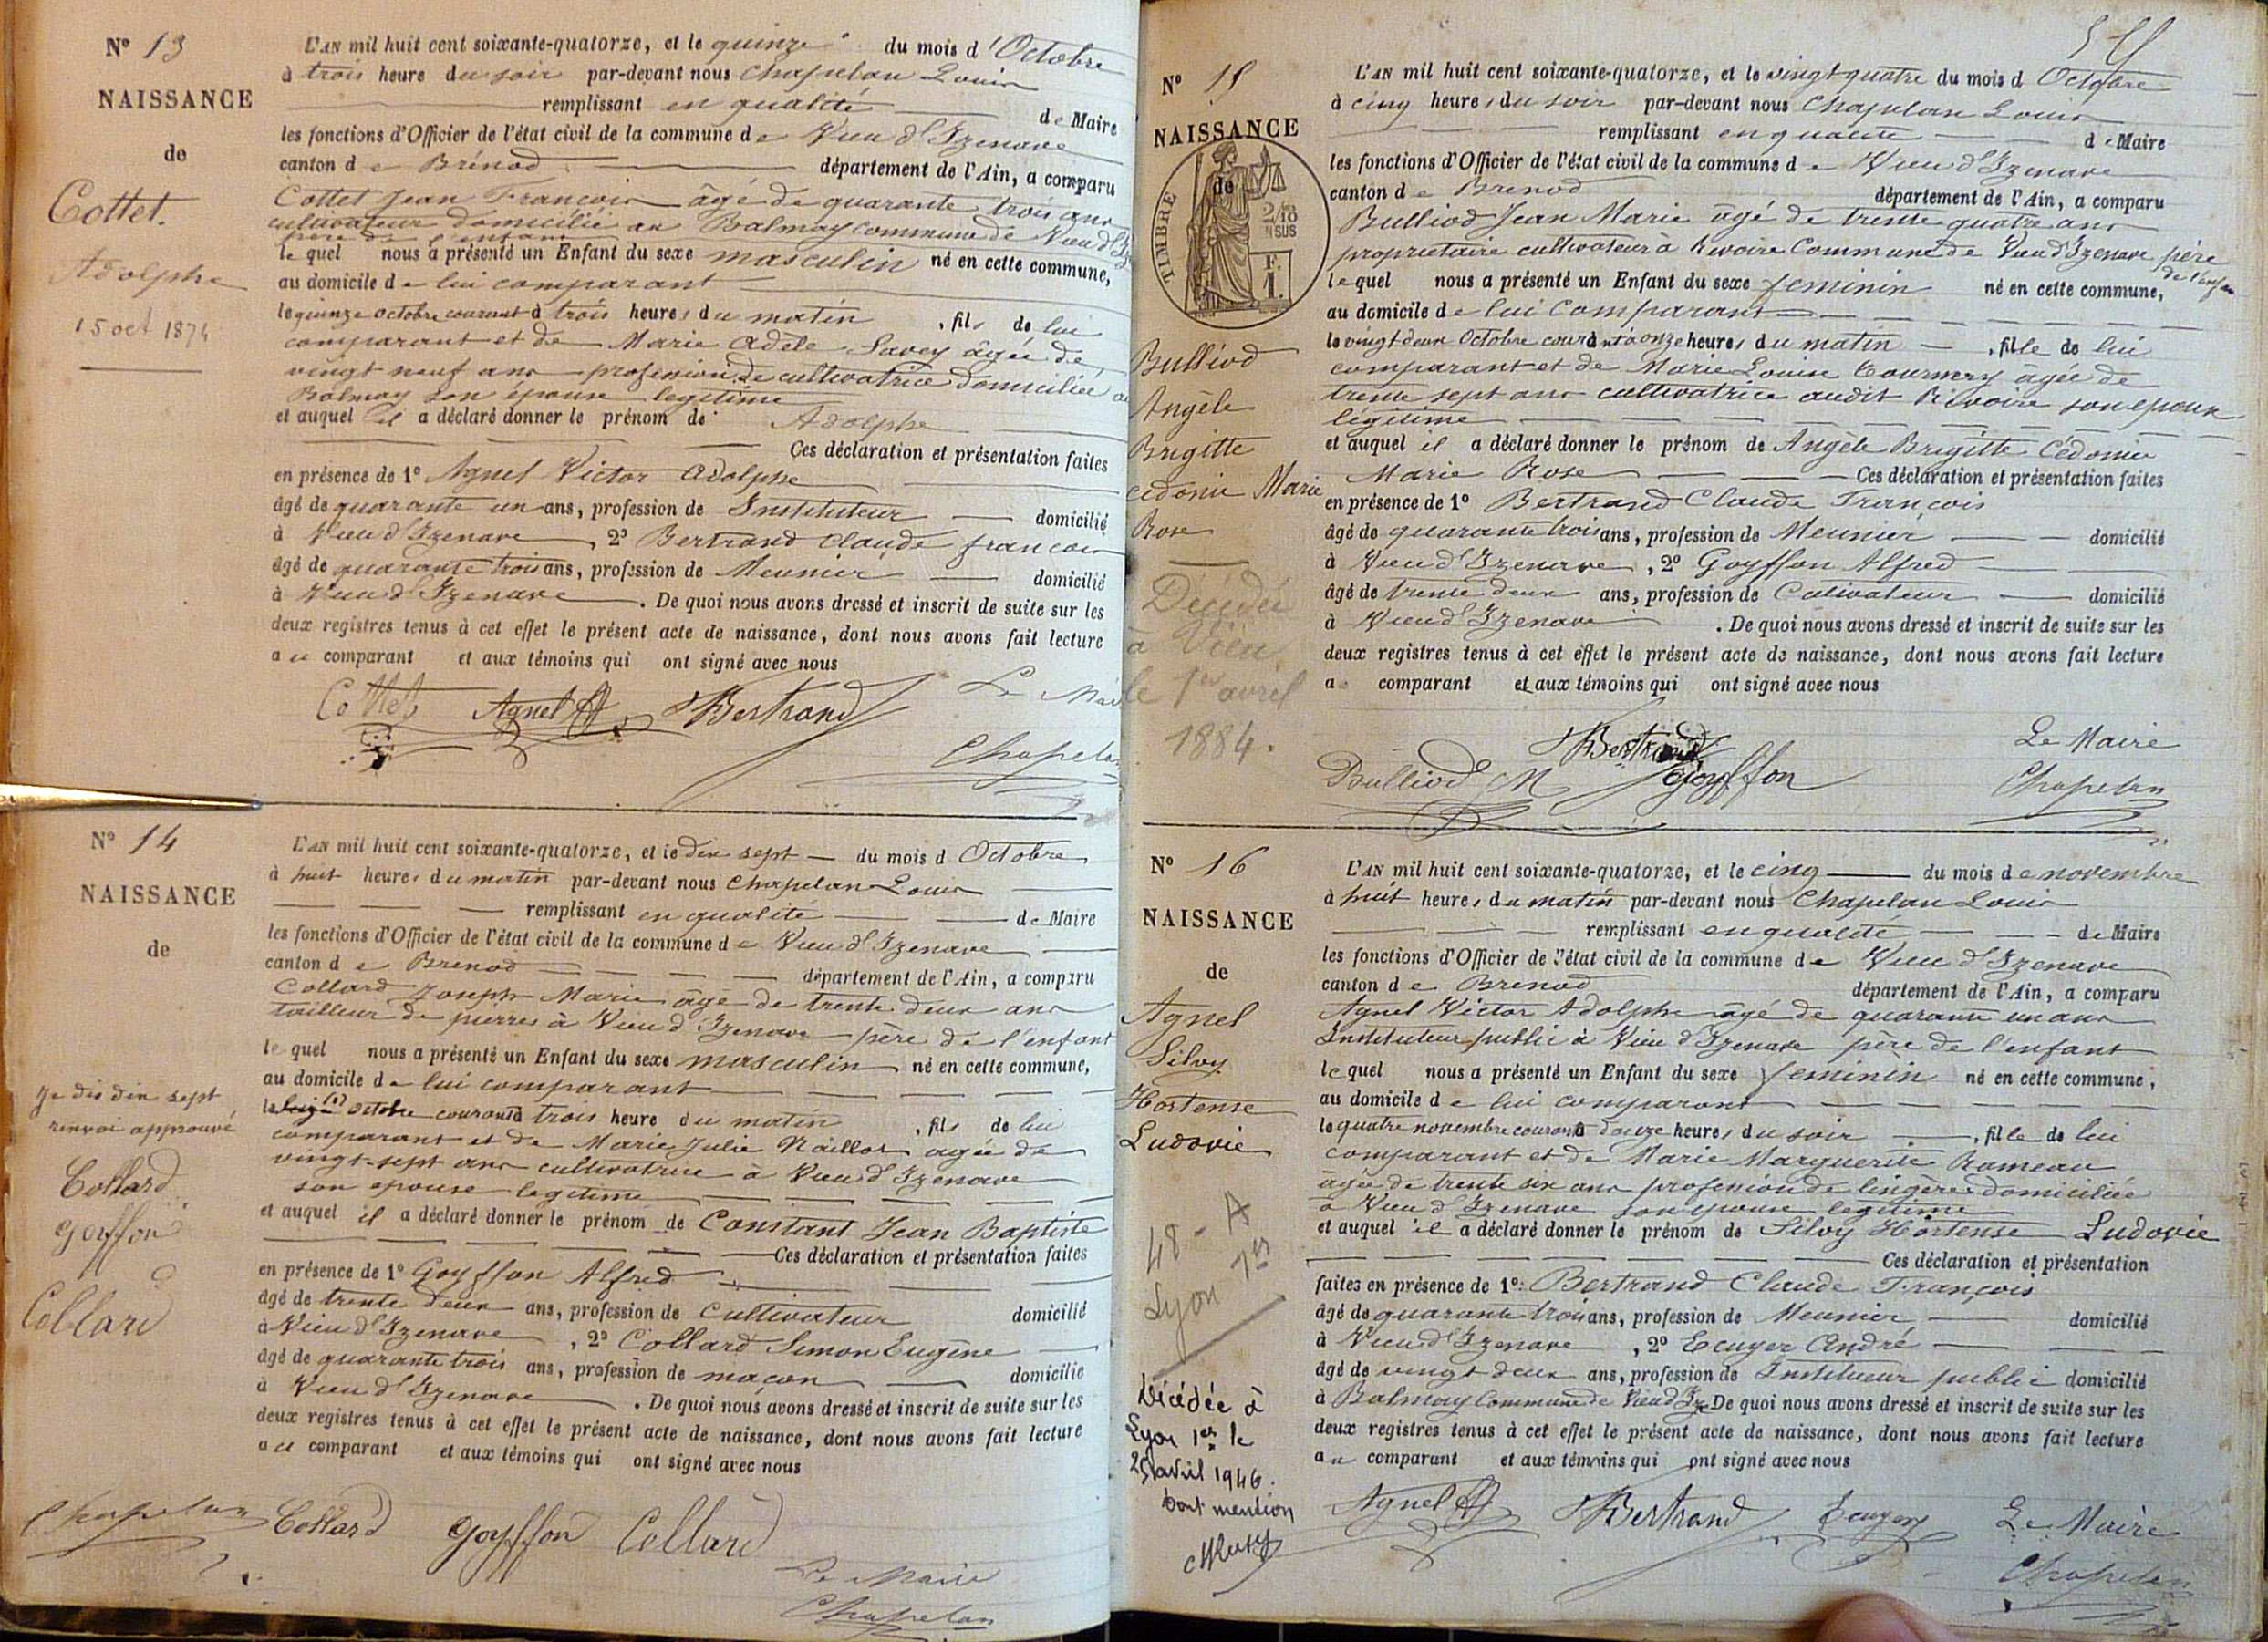 N° 13
NAISSANCE
de
Cottet.
Adolphe
15 oct 1874
L'AN mil huit cent soixante-quatorze, et le quinze du mois d'Octobre
à trois heure du soir par-devant nous Chapelan Louis
remplissant en qualité de Maire
les fonctions d'Officier de l'état civil de la commune de Vieu d'Izenave
canton de Brénod département de l'Ain, a comparu
Cottet Jean François âgé de quarante trois ans
cultivateur domicilié au Balmay commune de Vieu d'Iz
père de l'enfant
lequel nous a présenté un Enfant du sexe masculin né en cette commune,
au domicile de lui comparant
le quinze octobre courant à trois heures du matin, fils de lui
comparant et de Marie Adèle Savey âgée de
vingt neuf ans profession de cultivatrice domiciliée au
Balmay son épouse légitime
et auquel il a déclaré donner le prénom de Adolphe
Ces déclaration et présentation faites
en présence de 1° Agnel Victor Adolphe
âgé de quarante un ans, profession de Instituteur domicilié
à Vieu d'Izenave, 2° Bertrand Claude françois
âgé de quarante trois ans, profession de Meunier domicilié
à Vieu d'Izenave. De quoi nous avons dressé et inscrit de suite sur les
deux registres tenus à cet effet le présent acte de naissance, dont nous avons fait lecture
au comparant et aux témoins qui ont signé avec nous
Cottet Agnel Bertrand Le Maire
Chapelan
N° 14
NAISSANCE
de
Je dis dix sept
renvoi approuvé
Collard
Goyffon
Collard
L'AN mil huit cent soixante-quatorze, et le dix sept du mois d Octobre
à huit heures du matin par-devant nous Chapelan Louis
remplissant en qualité de Maire
les fonctions d'Officier de l'état civil de la commune de Vieu d'Izenave
canton de Brenod département de l'Ain, a comparu
Collard Joseph Marie âgé de trente deux ans
tailleur de pierres à Vieu d'Izenave père de l'enfant
lequel nous a présenté un Enfant du sexe masculin né en cette commune,
au domicile de lui comparant
le (1) octobre courant à trois heure du matin, fils de lui
comparant et de Marie Julie Naillot agée de
vingt-sept ans cultivatrice à Vieu d'Izenave
son epouse legitime
et auquel il a déclaré donner le prénom de Constant Jean Baptiste
Ces déclaration et présentation faites
en présence de 1° Goyffon Alfred
âgé de trente deux ans, profession de cultivateur domicilié
à Vieu d'Izenave, 2° Collard Simon Eugène
âgé de quarante trois ans, profession de maçon domicilié
à Vieu d'Izenave. De quoi nous avons dressé et inscrit de suite sur les
deux registres tenus à cet effet le présent acte de naissance, dont nous avons fait lecture
au comparant et aux témoins qui ont signé avec nous
Chapelan Collard Goyffon Collard
Le Maire
Chapelan
N° 15
NAISSANCE
de
TIMBRE
2/10
N SUS
F.
1.
Bulliod
Angèle
Brigitte
cédonie Marie
Rose
Décédée
à Vieu
le 1er avril
1884.
L'AN mil huit cent soixante-quatorze, et le vingt quatre du mois d Octobre
à cinq heures du soir par-devant nous Chapelan Louis
remplissant en qualité de Maire
les fonctions d'Officier de l'état civil de la commune de Vieu d'Izenave
canton de Brenod département de l'Ain, a comparu
Bulliod Jean Marie âgé de trente quatre ans
proprietaire cultivateur à Rivoire Commune de Vieu d'Izenave père
de l'enfant
lequel nous a présenté un Enfant du sexe feminin né en cette commune,
au domicile de lui Comparant
le vingt deux Octobre courant à onze heures du matin, fille de lui
comparant et de Marie Louise Tournery âgée de
trente sept ans cultivatrice audit Rivoire son epouse
légitime
et auquel il a déclaré donner le prénom de Angèle Brigitte Cédonie
Marie Rose Ces déclaration et présentation faites
en présence de 1° Bertrand Claude François
âgé de quarante trois ans, profession de Meunier domicilié
à Vieu d'Izenave, 2° Goyffon Alfred
âgé de trente deux ans, profession de Cultivateur domicilié
à Vieu d'Izenave. De quoi nous avons dressé et inscrit de suite sur les
deux registres tenus à cet effet le présent acte de naissance, dont nous avons fait lecture
a comparant et aux témoins qui ont signé avec nous
Bertrand Le Maire
Bulliod JM Goyffon Chapelan
N° 16
NAISSANCE
de
Agnel
Silvy
Hortense
Ludovie
48 - A
Lyon 1er
Décédée à
Lyon 1er le
25 avril 1946.
Dont mention
L'AN mil huit cent soixante-quatorze, et le cinq du mois de novembre
à huit heures du matin par-devant nous Chapelan Louis
remplissant en qualité de Maire
les fonctions d'Officier de l'état civil de la commune de Vieu d'Izenave
canton de Brenod département de l'Ain, a comparu
Agnel Victor Adolphe âgé de quarante un ans
Instituteur public à Vieu d'Izenave père de l'enfant
lequel nous a présenté un Enfant du sexe feminin né en cette commune,
au domicile de lui comparant
le quatre novembre courant à douze heures du soir, fille de lui
comparant et de Marie Marguerite Romeau
âgée de trente six ans profession de lingère domiciliée
à Vieu d'Izenave son epouse legitime
et auquel il a déclaré donner le prénom de Silvy Hortense Ludovie
Ces déclaration et présentation
faites en présence de 1° Bertrand Claude François
âgé de quarante trois ans, profession de Meunier domicilié
à Vieu d'Izenave, 2° Ecuyer André
âgé de vingt deux ans, profession de Instituteur public domicilié
à Balmay Commune de Vieu d'Iz. De quoi nous avons dressé et inscrit de suite sur les
deux registres tenus à cet effet le présent acte de naissance, dont nous avons fait lecture
au comparant et aux témoins qui ont signé avec nous
Agnel Bertrand Ecuyer Le Maire
Chapelan